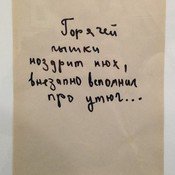 Горячей
пышки
ноздрит нюх,
внезапно вспомнил
про утюг...